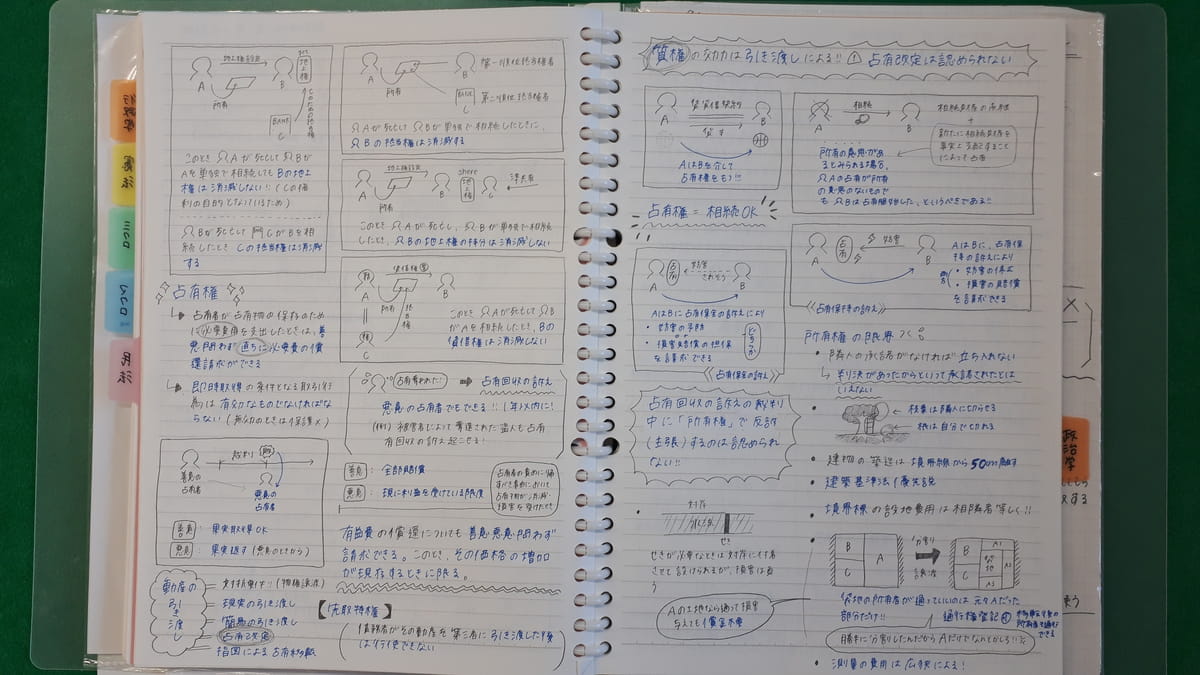 行政学
憲法
ミクロ
マクロ
民法
政治学
地上権設定
A
B
所有
地上権
BANK
C
このとき A が死亡して B が
A を単独で相続しても B の地上
権は消滅しない!!
B が死亡して C が B を相
続したとき C の抵当権は消滅
する
A
所有
B
第一順位抵当権者
BANK
C
第二順位抵当権者
A が死亡して B が単独で相続したときに、
B の抵当権は消滅する
地上権設定
A
所有
B
share
地上権
C
準共有
このとき A が死亡し、B が単独で相続
したとき、B の地上権の持分は消滅しない
A
所有
B
C
抵当権
このとき A が死亡して B
が A を相続したとき、B の
賃借権は消滅しない
占有権
占有者が占有物の保存のため
に必要費用を支出したときは、善
悪問わず 直ちに 必要費の償
還請求ができる
即時取得の条件となる取引行
為は有効なものでなければな
らない (無効のときは保護×)
占有奪われた!
⇒ 占有回収の訴え
悪意の占有者でもできる!! 1年以内に!
(例) 被害者によって奪還された盗人も占有
回収の訴え起こせる!
善意の
占有者
悪意の
占有者
善意 : 果実取得OK
悪意 : 果実返す
善意 : 全部賠償
悪意 : 現に利益を受けている限度
有益費の償還についても善意悪意問わず
請求できる。このとき、その価格の増加
が現存するときに限る。
動産の
引き
渡し
現実の引き渡し
簡易の引き渡し
占有改定
指図による占有移転
【先取特権】
債務者がその動産を第三者に引き渡した後
は行使できない
質権の効力は引き渡しによる!! ! 占有改定は認められない
賃貸借契約
A
B
貸す
A は B を介して
占有権をもつ!!
相続
A
B
相続財産の承継
+
新たに相続財産を
事実上支配することに
よっても占有
所有の意思が
あるとみられる場合、
A の占有が所有
の意思のないもので
も B は占有開始した、というべきである!!
占有権 = 相続 OK
A
占有
B
妨害
されそう
A は B に占有保全の訴えにより
・妨害の予防
・損害賠償の担保
を請求できる
どちらか
《占有保全の訴え》
A
占有
妨害
B
A は B に、占有保
持の訴えにより
・妨害の停止
・損害の賠償
を請求できる
両方
《占有保持の訴え》
占有回収の訴えの裁判
中に「所有権」で反訴
(主張) するのは認められ
ない!!
所有権の限界
・隣人の承諾がなければ立ち入れない
判決があったからといって承諾されたとは
いえない
枝葉は隣人に切らせる
根は自分で切れる
・建物の築造は境界線から50cm離す
・建築基準法 優先説
・境界標の設置費用は相隣者等しく!!
対岸
せき
せきが必要なときは対岸に付着
させて設けられるが、損害は負
う
B
A
C
分割
譲渡
B
C
袋地
A1
A2
A3
袋地の所有者が通っていいのは元々Aだった
部分だけ!!
A の土地なら通って損害
与えても償金不要
勝手に分割したんだからAだけでなんとかしろ!!
・測量の費用は広狭による!